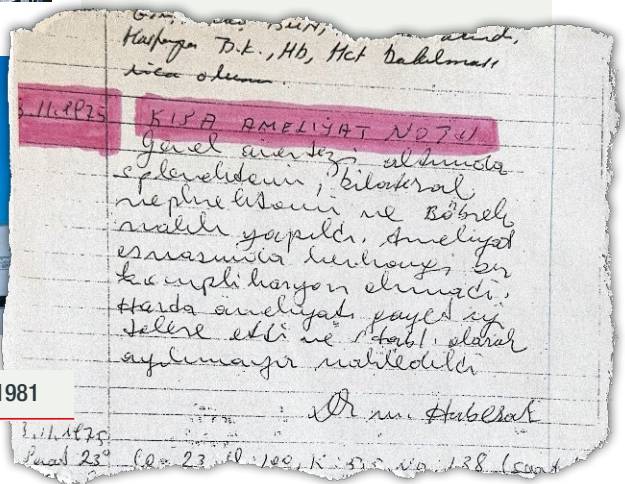 BUN,
Hastaya B.K., Hb, Hct bakılması
rica olunur.
3.11.1975 KISA AMELİYAT NOTU
Genel anestezi altında
splenektomi, bilateral
nephrektomi ve Böbrek
nakli yapıldı. Ameliyat
esnasında herhangi bir
komplikasyon olmadı.
Hasta ameliyatı gayet iyi
tolere etti ve stabl olarak
ayılmaya nakledildi
Dr M. Haberal
1981
3.11.1975
Saat 23⁰ Co₂ 23 Cl 100, K: Na: 138 (saat